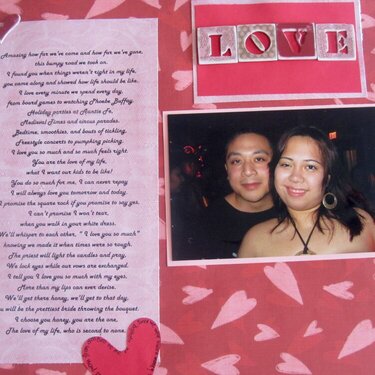 Amazing how far we've come and how far we've gone,
this bumpy road we took on.
I found you when things weren't right in my life,
you came along and showed how life should be like.
I love every minute we spend every day,
from board games to watching Phoebe Buffay.
Holiday parties at Auntie Fe,
Medieval Times and circus parades.
Bedtime, smoothies, and bouts of tickling,
Freestyle concerts to pumpking picking.
I love you so much and so much feels right.
You are the love of my life,
what I want our kids to be like!
You do so much for me, I can never repay
I will always love you tomorrow and today.
I promise the square rock if you promise to say yes,
I can't promise I won't tear,
when you walk in your white dress.
We'll whisper to each other, " I love you so much"
knowing we made it when times were so rough.
The priest will light the candles and pray,
We lock eyes while our vows are exchanged.
I tell you I love you so much with my eyes,
More than my lips can ever devise.
We'll get there honey, we'll get to that day,
You will be the prettiest bride throwing the bouquet.
I choose you honey, you are the one,
The love of my life, who is second to none.
LOVE